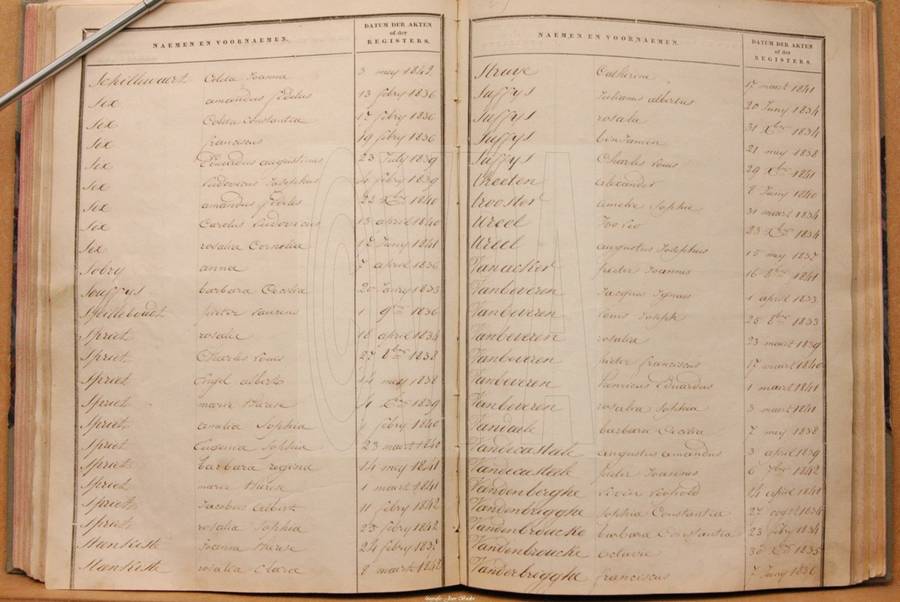 NAEMEN EN VOORNAEMEN.
DATUM DER AKTEN
of der
REGISTERS.
Schillewaert Coleta Joanna 3 mey 1842
Sex amandus fidelus 13 febry 1836
Sex Coleta Constantia 17 febry 1836
Sex franciscus 19 febry 1836
Sex Eduardus augustinus 23 July 1839
Sex Ludovicus Josephus febry 1839
Sex amandus fideles 22 Xbre 1840
Sex Carolus Ludovicus 15 april 1840
Sex rosalia Cornelia 12 Juny 1841
Sobry anna 7 april 1836
Souffys barbara Cecilia 20 1833
Spilleboudt pieter laurens 1 9bre 1836
Spriet rosalie 18 april 1834
Spriet Charles louis 27 8bre 1838
Spriet Engel albert 14 mey 1838
Spriet marie therese Xbre 1839
Spriet amelia Sophia febry 1840
Spriet Eugenia Sophia 23 maart 1840
Spriet barbara regina 14 mey 1841
Spriet marie therese 1 maart 1841
Spriet Jacobus albert 11 febry 1842
Spriet rosalia Sophia 25 febry 1842
Stankeste Joanna therese 24 febry 1837
Stankeste rosalia Clara 8 maart 1842
NAEMEN EN VOORNAEMEN.
DATUM DER AKTEN
of der
REGISTERS.
Struye Catherina 17 maart 1841
Suffys Julianus albertus 20 Juny 1834
Suffys rosalia 31 Xbre 1834
Suffys benjamin 21 mey 1838
Suffys Charles louis 29 Xbre 1841
alexander 8 Juny 1840
amelie Sophia 31 maart 1834
Ureel 23 Xbre 1834
Ureel augustus Josephus 15 mey 1837
Vanacker pieter Joannes 16 8bre 1841
Vanbeveren Jacques Ignaes 1 april 1833
Vanbeveren louis Joseph 25 8bre 1833
Vanbeveren rosalia 23 maart 1839
Vanbeveren pieter franciscus 17 maart 1840
Vanbeveren henricus Eduardus 1 maart 1841
Vanbeveren rosalia Sophia 3 maart 1841
Vandale barbara Cecilia 7 mey 1838
Vandecasteele augustus amandus 3 april 1839
Vandecasteele pieter Joannes 6 7bre 1842
Vandenberghe leopold 14 april 1841
Vandenbrugghe Sophia Constantia 27 1834
Vandenbroucke barbara Constantia 23 febry 1834
Vandenbroucke octavie 30 Xbre 1835
Vandenbrugghe franciscus 7 Juny 1836